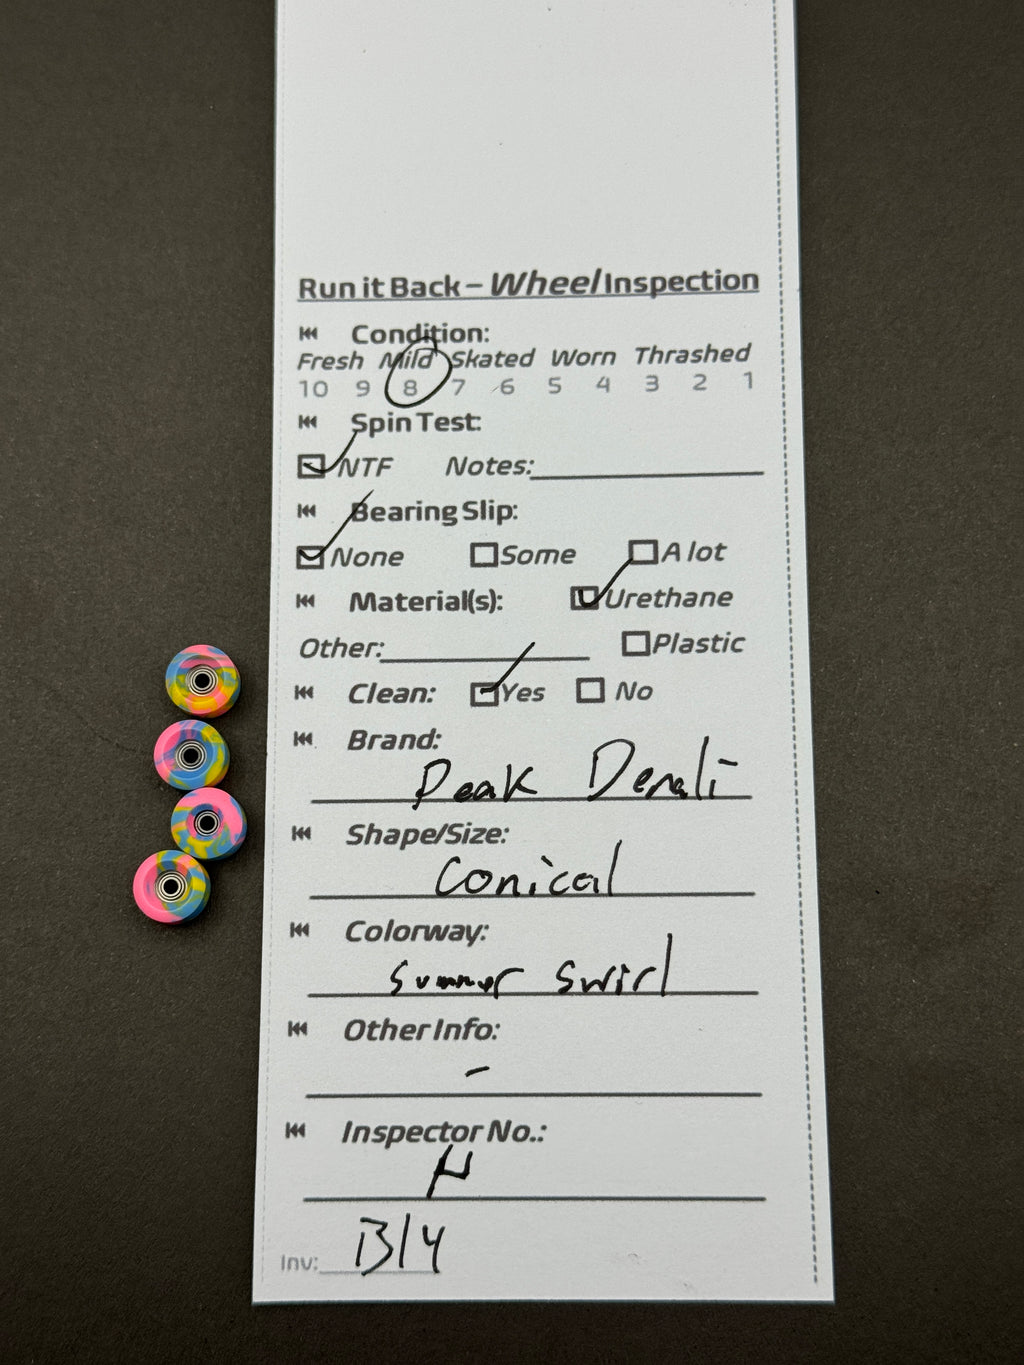 Run it Back – Wheel Inspection
Condition:
Fresh Mild Skated Worn Thrashed
10 9 8 7 6 5 4 3 2 1
Spin Test:
NTF Notes:
Bearing Slip:
None Some A lot
Material(s): Urethane
Other: Plastic
Clean: Yes No
Brand:
Peak Denali
Shape/Size:
Conical
Colorway:
Summer Swirl
Other Info:
-
Inspector No.:
Inv: B14